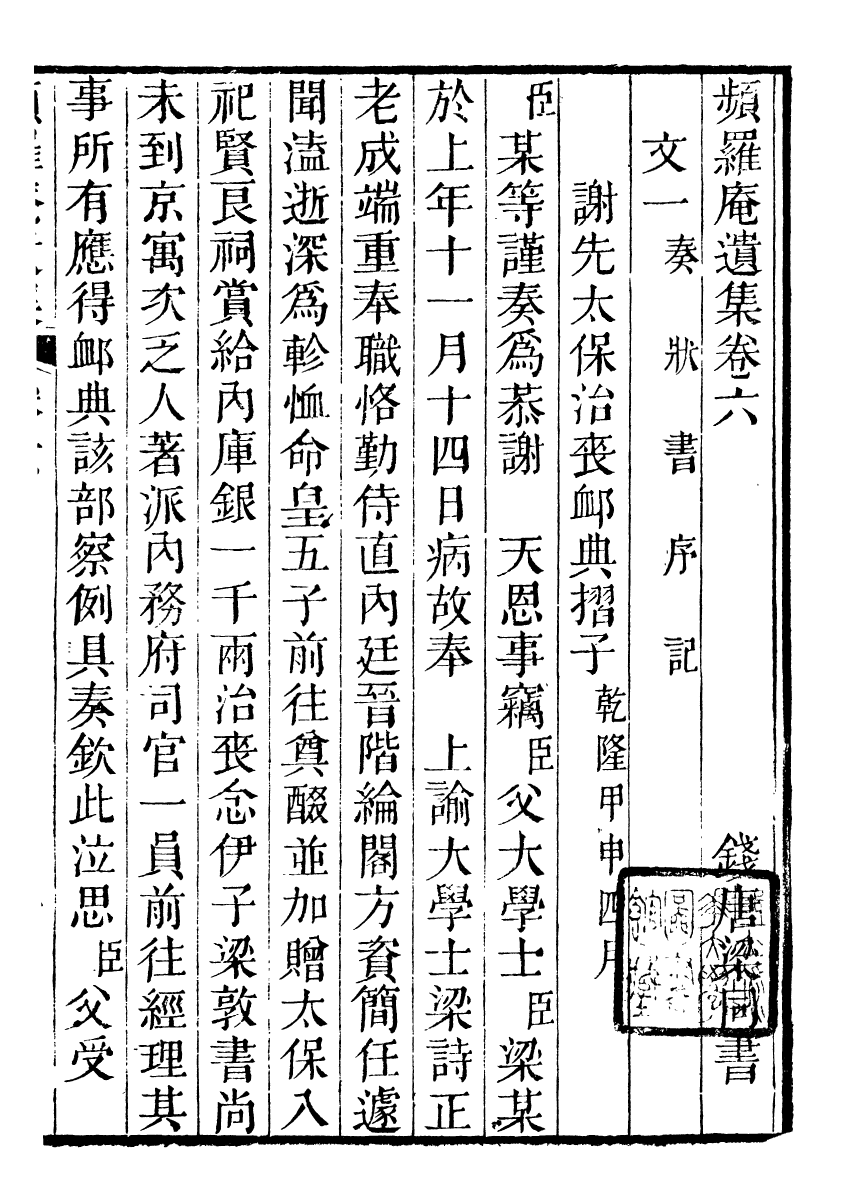 頻羅庵遺集卷六
錢唐梁同書
文一奏狀書序記
謝先太保治喪䘏典摺子乾隆甲申四月
臣某等謹奏爲恭謝　天恩事竊臣父大學士臣梁某
於上年十一月十四日病故奉　上諭大學士梁詩正
老成端重奉職恪勤侍直內廷晉階綸閣方資簡任遽
聞溘逝深爲軫恤命皇五子前往奠醊並加贈太保入
祀賢良祠賞給內庫銀一千兩治喪念伊子梁敦書尚
未到京寓次乏人著派內務府司官一員前往經理其
事所有應得䘏典該部察例具奏欽此泣思臣父受